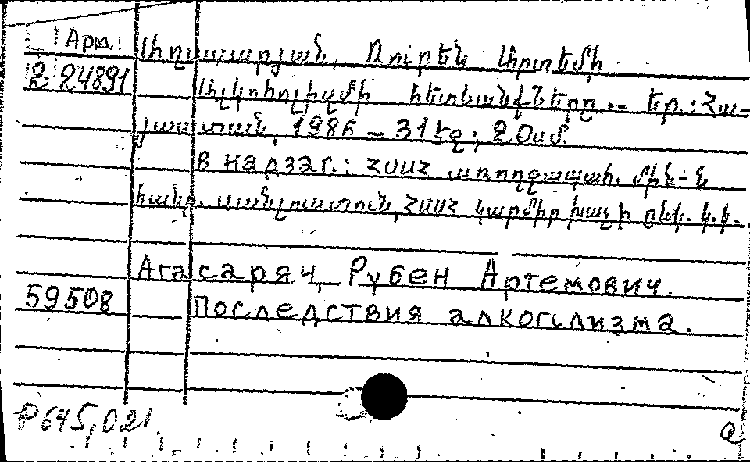 Арм. Աղասարյան, Ռուբեն Արտեմի
2 24891 Ալկոհոլիզմի հետևանքները.— Եր.: Հա-
յաստան, 1986 — 31 էջ; 20սմ.
В надзаг.: ՀՍՍՀ առողջապահ. մին-ն
հանր. սանլուստուն, ՀՍՍՀ կարմիր խաչի ընկ. կ.կ.
Агасарян, Рубен Артемович.
59508 Последствия алкоголизма.
Р645,021
а